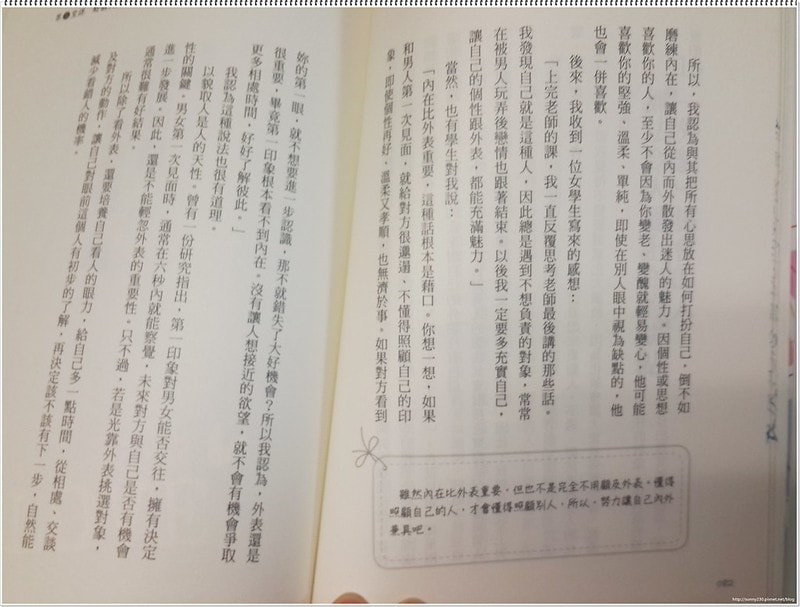 所以，我認為與其把所有心思放在如何打扮自己，倒不如
磨練內在，讓自己從內而外散發出迷人的魅力。因個性或思想
喜歡你的人，至少不會因為你變老、變醜就輕易變心，他可能
喜歡你的堅強、溫柔、單純，即使在別人眼中視為缺點的，他
也會一併喜歡。
後來，我收到一位女學生寫來的感想：
「上完老師的課，我一直反覆思考老師最後講的那些話。
我發現自己就是這種人，因此總是遇到不想負責的對象，常常
在被男人玩弄後戀情也跟著結束。以後我一定要多充實自己，
讓自己的個性跟外表，都能充滿魅力。」
當然，也有學生對我說：
「內在比外表重要，這種話根本是藉口。你想一想，如果
和男人第一次見面，就給對方很邋遢、不懂得照顧自己的印
象，即使個性再好、溫柔又孝順，也無濟於事。如果對方看到
雖然內在比外表重要，但也不是完全不用顧及外表。懂得
照顧自己的人，才會懂得照顧別人。所以，努力讓自己內外
兼具吧。
妳的第一眼，就不想要進一步認識，那不就錯失了大好機會？所以我認為，外表還是
很重要，畢竟第一印象根本看不到內在。沒有讓人想接近的欲望，就不會有機會爭取
更多相處時間，好好了解彼此。」
我認為這種說法也很有道理。
以貌取人是人的天性。曾有一份研究指出，第一印象對男女能否交往，擁有決定
性的關鍵。男女第一次見面時，通常在六秒內就能察覺，未來對方與自己是否有機會
進一步發展。因此，還是不能輕忽外表的重要性。只不過，若是光靠外表挑選對象，
通常很難有好結果。
所以除了看外表，還要培養自己看人的眼力，給自己多一點時間，從相處、交談
及對方的動作，讓自己對眼前這個人有初步的了解，再決定該不該有下一步，自然能
減少看錯人的機率。
http://sunny230.pixnet.net/blog